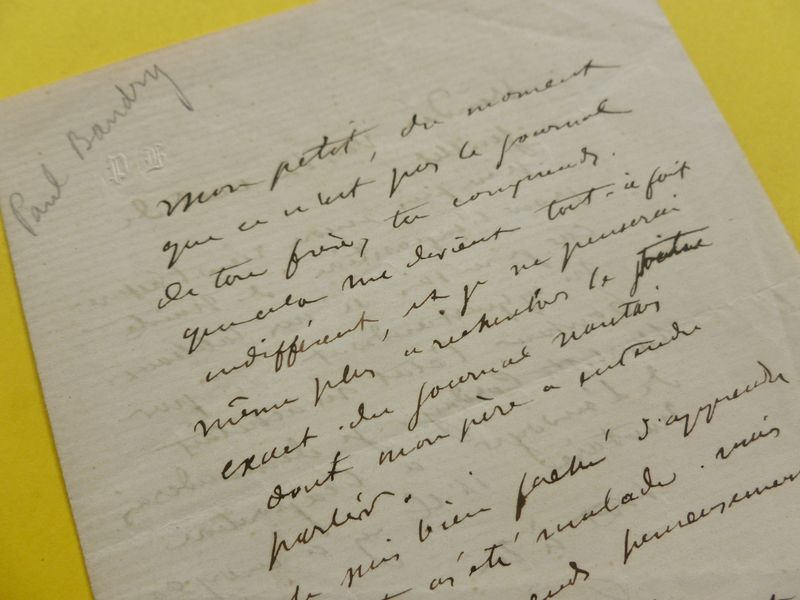 Paul Baudry
P B
Mon petit, du moment
que ce n'est pas le journal
de ton frère, tu comprends
que cela me devient tout-à-fait
indifférent, et je ne penserai
même plus à rechercher le
exact du journal nantais
dont mon père a entendu
parler.
Je suis bien fâché d'apprendre
as été malade. mais